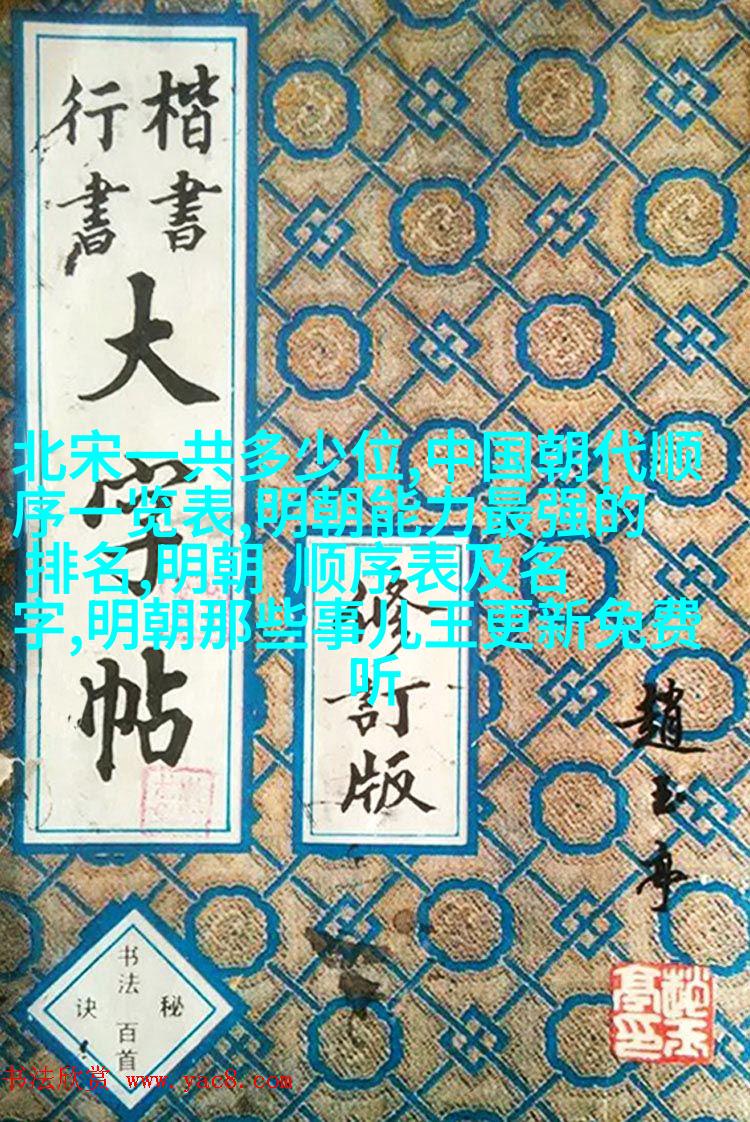 楷書
行書
大字帖
北宋一共多少位,中国朝代顺
序一览表,明朝能力最强的
排名,明朝 顺序表及名
字,明朝那些事儿王更新免费
听
修訂版
趙玉亭
书法百首
秘诀
书法欣赏 www.yac8.com